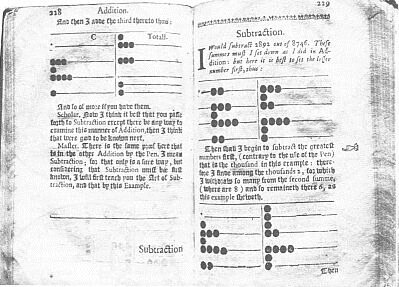 218
Addition.
And then I adde the third thereto thus:
C Totall.
And so of more if you have them.
Scholar. Now I think it best that you passe
forth to Subtraction except there be any way to
examine this manner of Addition, then I think
that were good to be known next.
Master. There is the same proof here that
is in the other Addition by the Pen. I mean
Subtraction; for that only is a sure way, but
considering that Subtraction must be first
known, I will first teach you the Art of Sub-
traction, and that by this Example.
Subtraction
219
Subtraction.
I Would subtract 2892 out of 8746. These
summes must I set down as I did in Ad-
dition: but here it is best to set the lesser
number first, thus:
Then shall I begin to subtract the greatest
numbers first, (contrary to the use of the Pen)
that is the thousand in this example: there-
fore I finde among the thousands 2, for which
I withdraw so many from the second summe,
(where are 8) and so remaineth there 6, as
this example sheweth.
Then